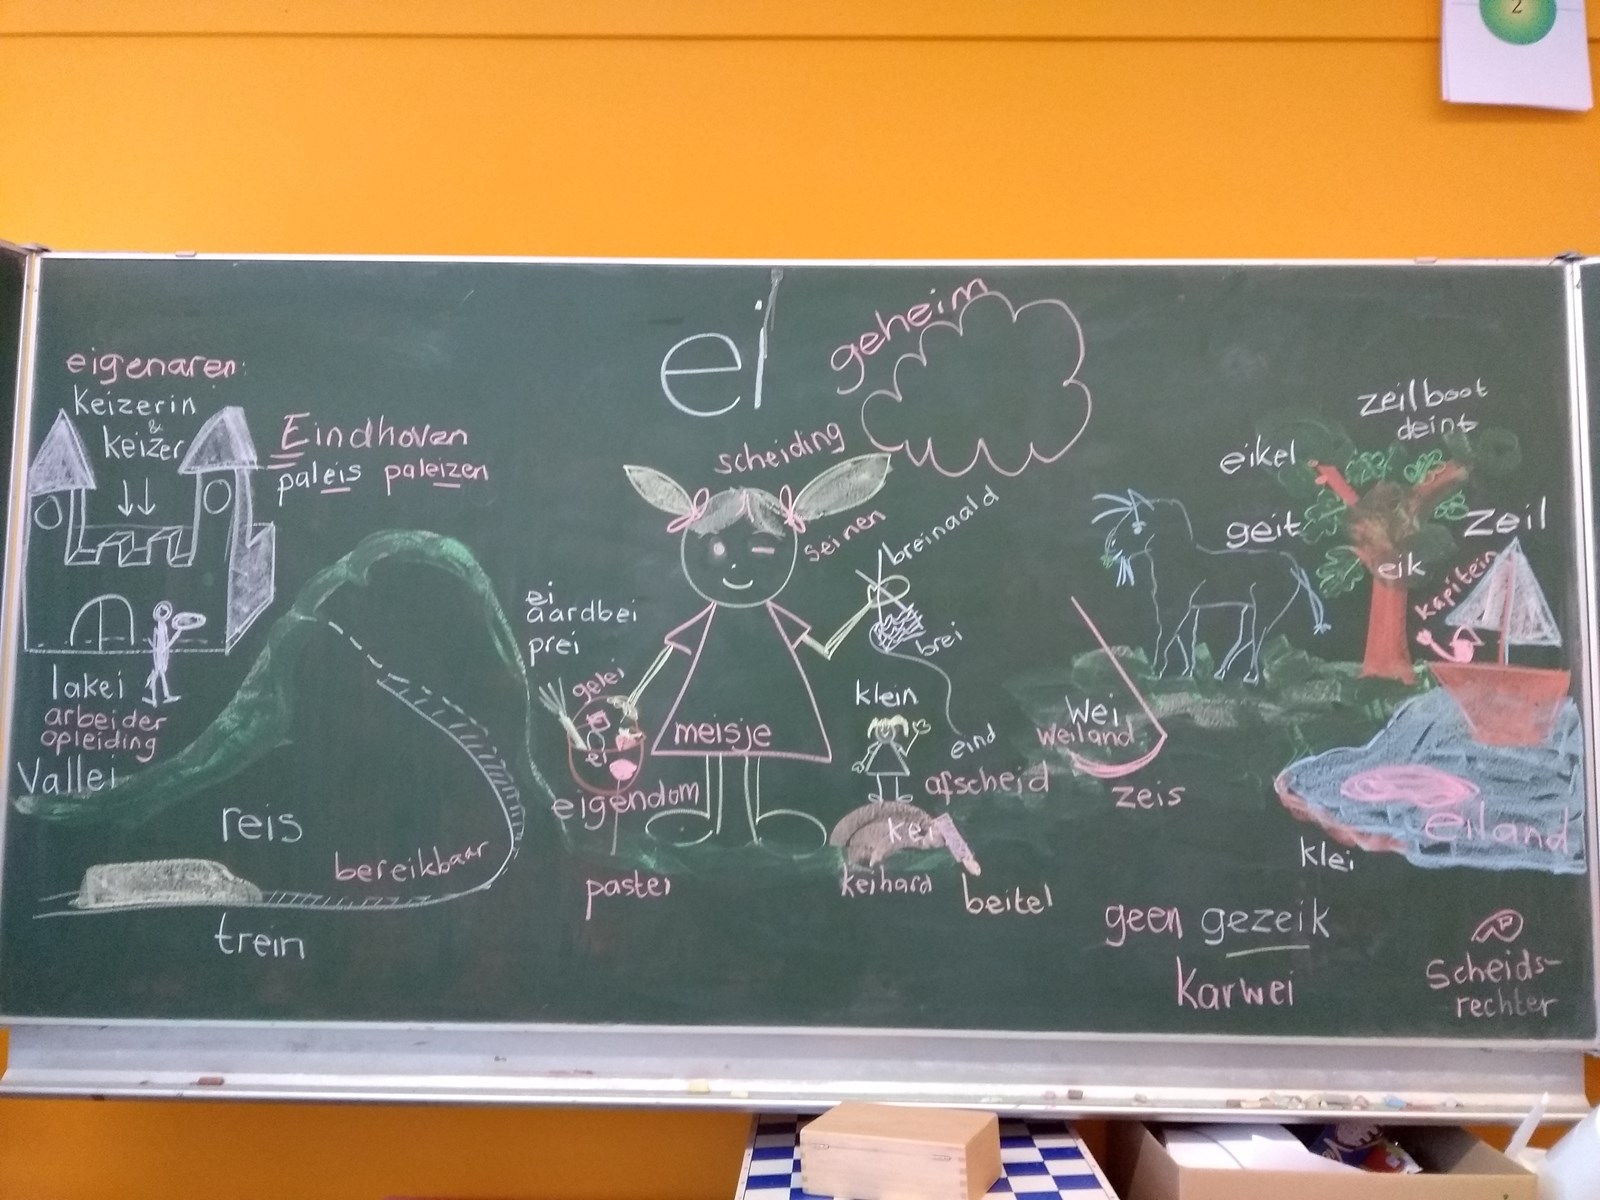 2
ei
geheim
eigenaren:
keizerin
&
keizer
Eindhoven
paleis paleizen
scheiding
seinen
breinaald
brei
eind
zeilboot
deint
eikel
geit
eik
zeil
kapitein
ei
aardbei
prei
gelei
ei
meisje
eigendom
pastei
klein
afscheid
kei
keihard
beitel
lakei
arbeider
opleiding
Vallei
reis
bereikbaar
trein
wei
weiland
zeis
eiland
klei
geen gezeik
Karwei
Scheids-
rechter